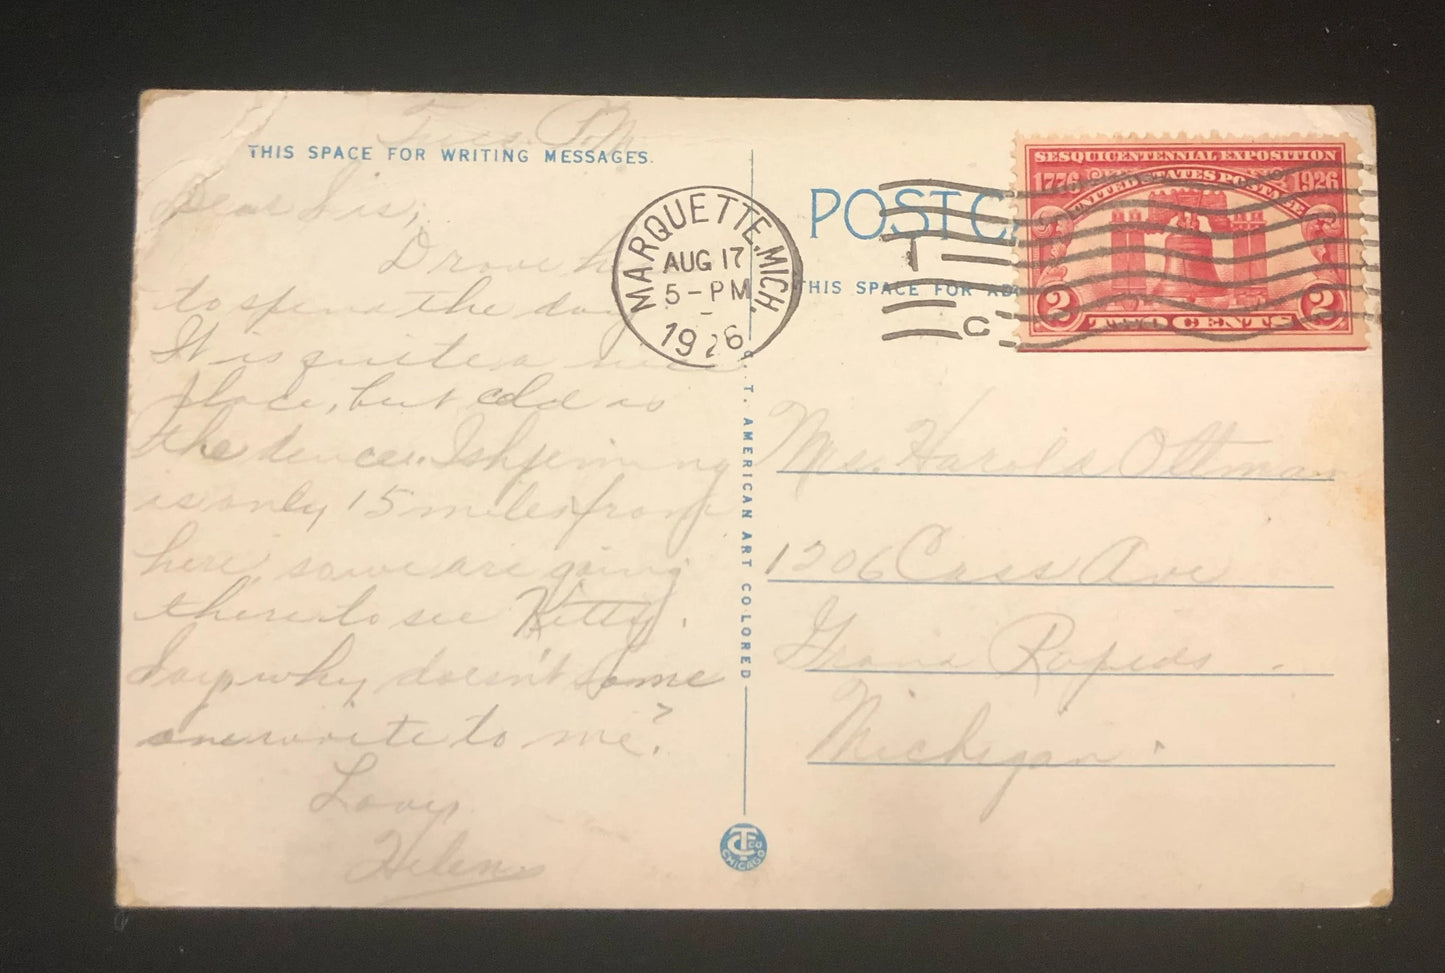 Tues. P.M.
THIS SPACE FOR WRITING MESSAGES.
Dear Sis,
Drove h
to spend the day
It is quite a nice
place, but cold as
the deuce. Ishpeming
is only 15 miles from
here so we are going
there to see Kitty.
Say, why doesn't some
one write to me?
Love,
Helen
MARQUETTE, MICH.
AUG 17
5-PM
1926
POSTCA
THIS SPACE FOR AD
C
SESQUICENTENNIAL EXPOSITION
1776 1926
UNITED STATES POSTAGE
2 2
TWO CENTS
C. T. AMERICAN ART COLORED
Mrs. Harold Ottman
1206 Cass Ave
Grand Rapids
Michigan.
CT CO
CHICAGO